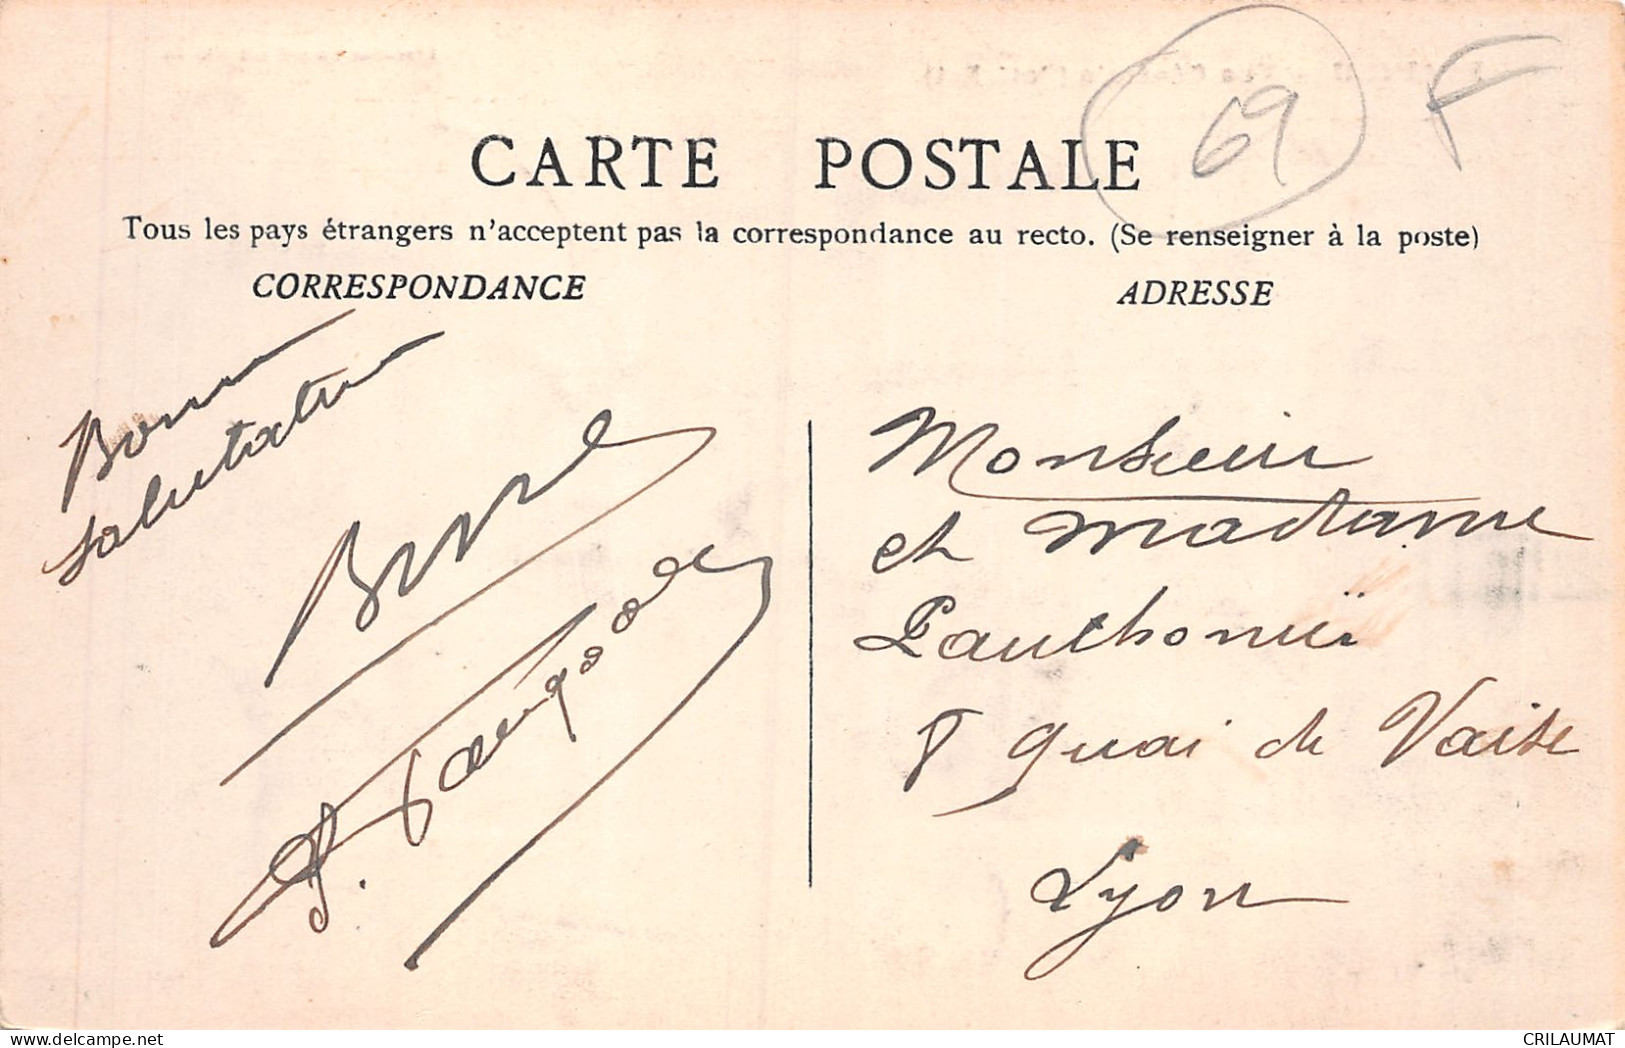 69 F
CARTE POSTALE
Tous les pays étrangers n'acceptent pas la correspondance au recto. (Se renseigner à la poste)
CORRESPONDANCE
ADRESSE
Bonne
salutation
Monsieur
et madame
8 quai de Vaise
Lyon
CRILAUMAT